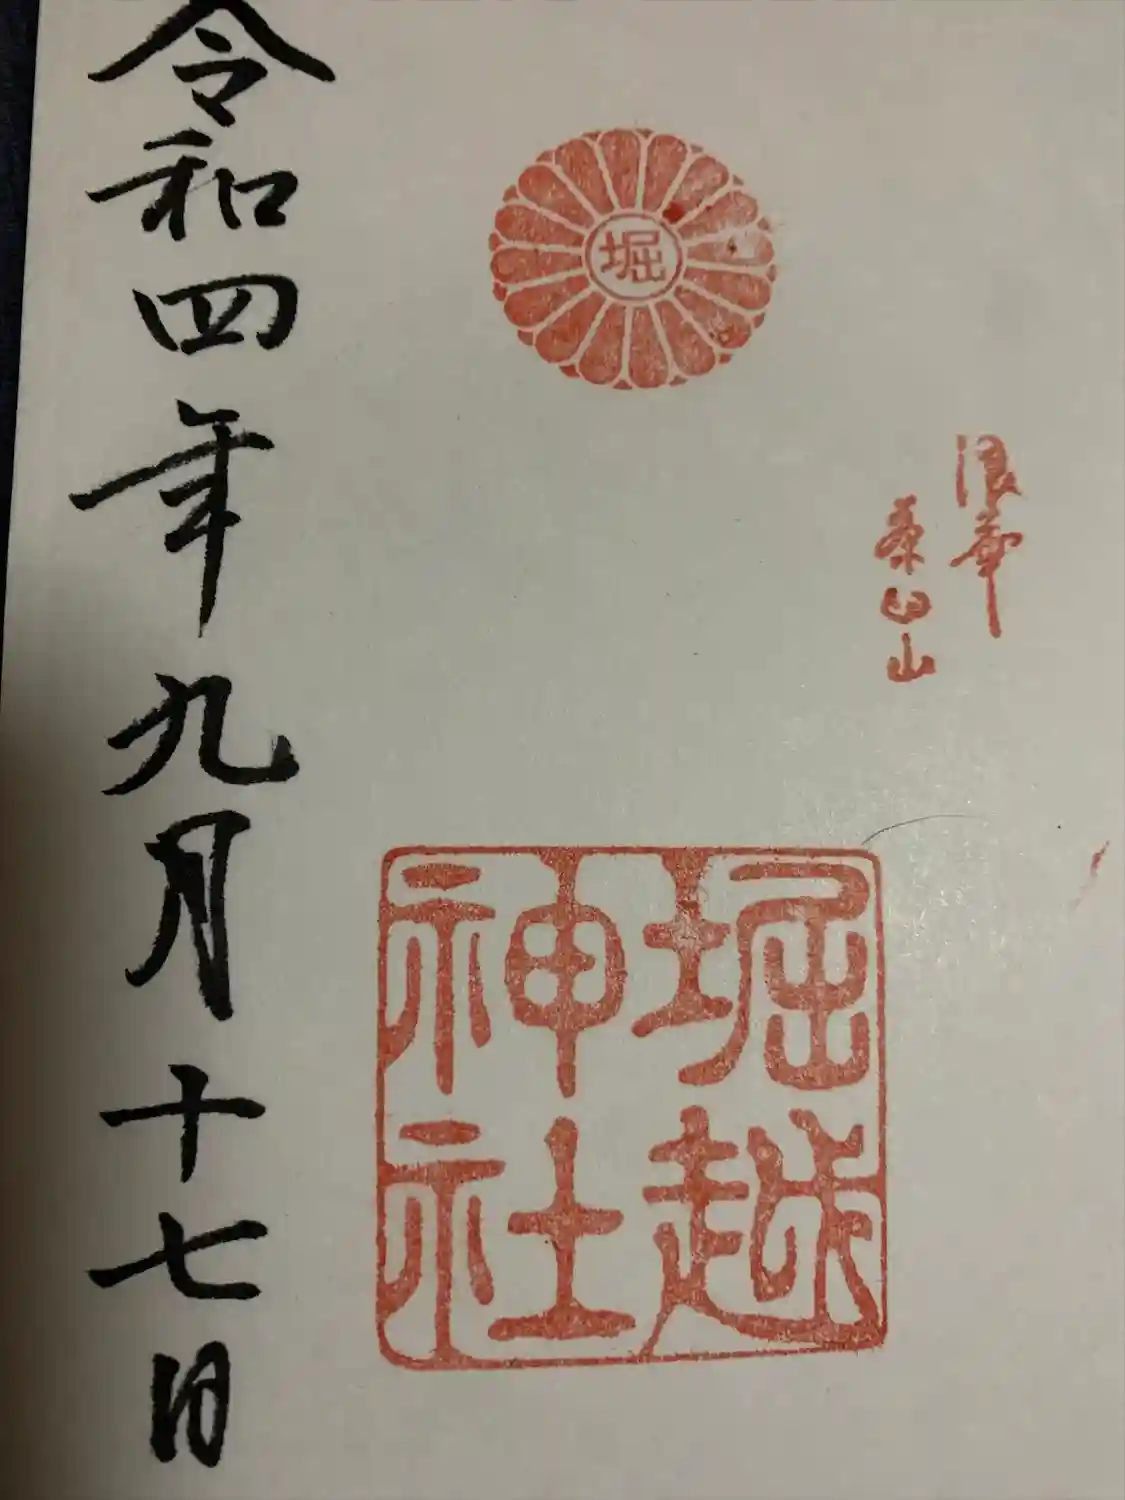 浪華
茶臼山
堀
堀越
神社
令和四年九月十七日